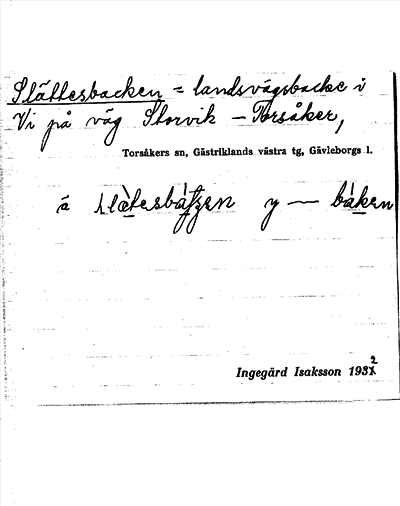 Slättesbacken = landsvägsbacke i
Vi på väg Storvik – Torsåker,
Torsåkers sn, Gästriklands västra tg, Gävleborgs l.
ä y — båken
Ingegärd Isaksson 1932